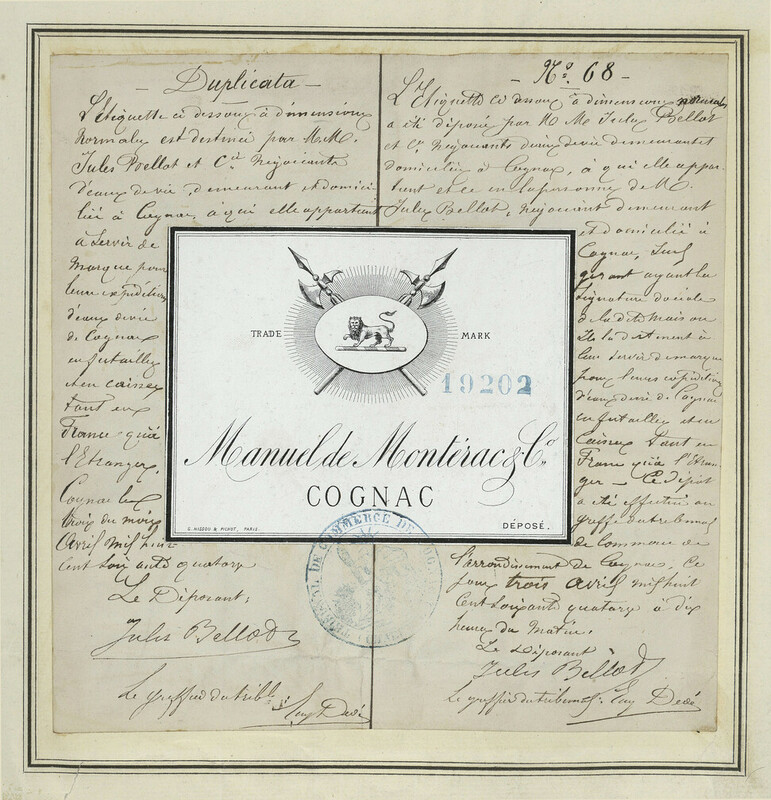 Duplicata
L'Etiquette ci dessous à dimensions
Normales est destinée par M.M.
Jules Bellot et Cie Négociants
d'eaux de vie, demeurant et domici
lié à Cognac, à qui elle appartient
à servir de
Marque pour
leurs expéditions
d'eaux de vie
de Cognac
en futailles
et en caisses
tant en
France qu'à
l'Etranger.
Cognac le
trois du mois
Avril mil huit
cent soixante quatorze
Le Déposant,
Jules Bellot
Le greffier du tribl.
Eug Dedé
No. 68
L'Etiquette ci dessous à dimensions normales
a été déposée par M M Jules Bellot
et Cie Négociants d'eaux de vie demeurant et
domiciliés à Cognac, à qui elle appar
tient et ce en la personne de M.
Jules Bellot, Négociant demeurant
et domicilié à
Cognac, Seul
gérant ayant la
Signature sociale
de la dite Maison
Ils la destinent à
leur servir de marque
pour leurs expéditions
d'eaux de vie de Cognac
en futailles et en
Caisses tant en
France qu'à l'Etran
ger — Ce dépôt
a été effectué au
greffe du tribunal
de Commerce de
l'arrondissement de Cognac, Ce
jour trois avril mil huit
Cent Soixante quatorze à dix
heures du Matin.
Le Déposant
Jules Bellot
Le greffier du tribunal
Eug Dedé
TRADE MARK
19202
Manuel de Montérac & Co.
COGNAC
G. NISSOU & PICHOT, PARIS.
DÉPOSÉ.
TRIBUNAL DE COMMERCE DE COG